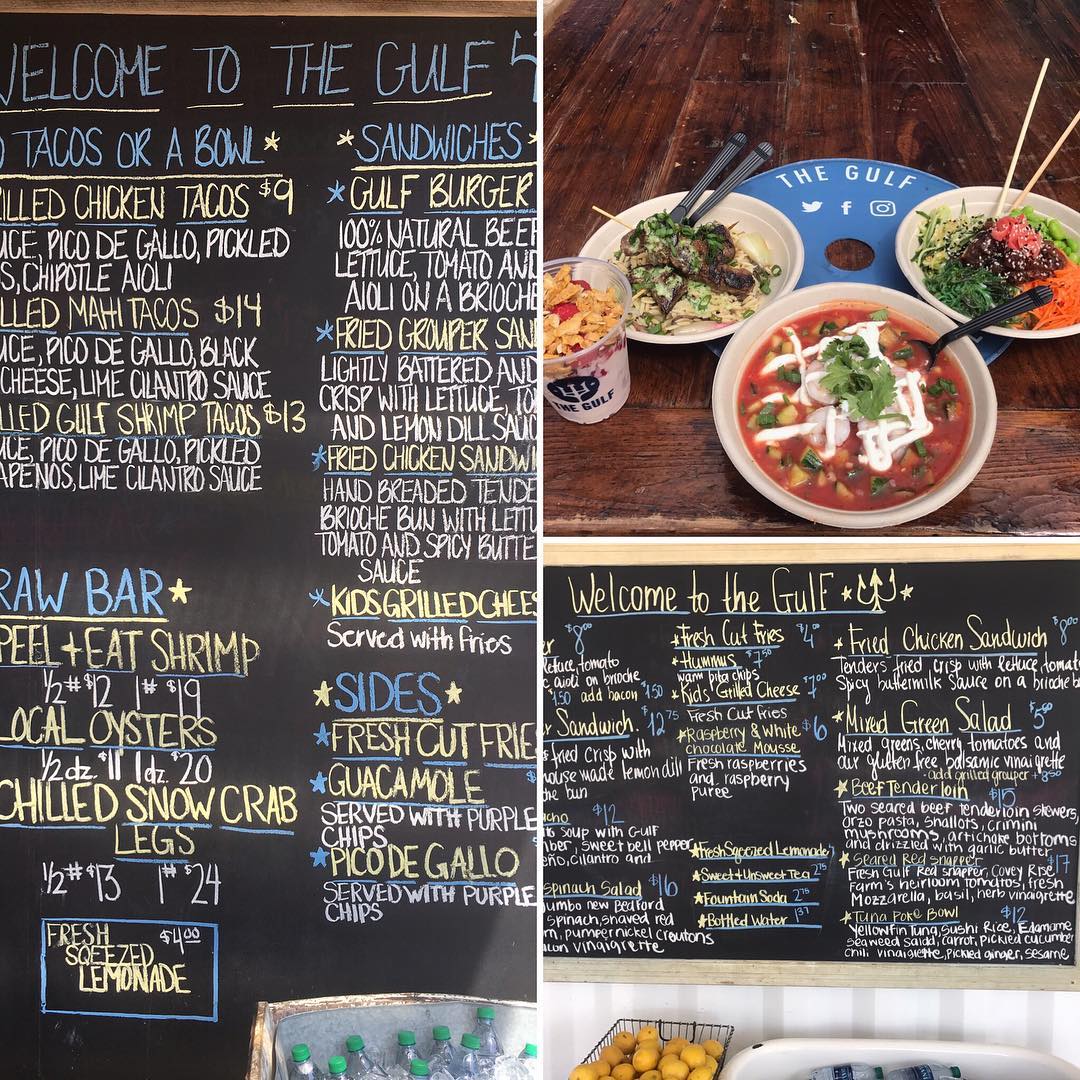 WELCOME TO THE GULF
TACOS OR A BOWL
CHICKEN TACOS $9
PICO DE GALLO, PICKLED
CHIPOTLE AIOLI
MAHI TACOS $14
PICO DE GALLO, BLACK
CHEESE, LIME CILANTRO SAUCE
GULF SHRIMP TACOS $13
PICO DE GALLO, PICKLED
LIME CILANTRO SAUCE
RAW BAR
PEEL + EAT SHRIMP
1/2# $12 1# $19
LOCAL OYSTERS
1/2 dz. $11 1 dz. $20
CHILLED SNOW CRAB
LEGS
1/2# $13 1# $24
FRESH $4.00
SQEEZED
LEMONADE
SANDWICHES
GULF BURGER
100% NATURAL BEEF
LETTUCE, TOMATO AND
AIOLI ON A BRIOCHE
FRIED GROUPER SAN
LIGHTLY BATTERED AND
CRISP WITH LETTUCE, TO
AND LEMON DILL SAUC
FRIED CHICKEN SANDWI
HAND BREADED TENDE
BRIOCHE BUN WITH LETTU
TOMATO AND SPICY BUTTE
SAUCE
KIDS GRILLED CHEES
Served with fries
SIDES
FRESH CUT FRIE
GUACAMOLE
SERVED WITH PURPLE
CHIPS
PICO DE GALLO
SERVED WITH PURPLE
CHIPS
THE GULF
THE GULF
Welcome to the Gulf
$8.00
lettuce, tomato
aioli on a brioche
1.50 add bacon $1.50
Sandwich $12.75
fried Crisp with
house made lemon dill
the bun
$12
soup with Gulf
sweet bell pepper
cilantro and
Spinach Salad $16
jumbo new Bedford
spinach, shaved red
pumpernickel croutons
vinaigrette
Fresh Cut Fries $4
Hummus $7.50
warm pita chips
Kids' Grilled Cheese $7.00
Fresh Cut fries
Raspberry & White $6
chocolate Mousse
Fresh raspberries
and raspberry
puree
Fresh Sqeezed Lemonade
Sweet & Unsweet Tea 2.75
Fountain Soda 2.75
Bottled Water 1.37
Fried Chicken Sandwich $8.00
Tenders fried crisp with lettuce, tomato
Spicy buttermilk Sauce on a brioche b
Mixed Green Salad $5.50
Mixed greens, cherry tomatoes and
our gluten free balsamic vinaigrette
add grilled grouper + 8.50
Beef Tenderloin $15
Two seared beef tenderloin skewers,
orzo pasta, shallots, crimini
mushrooms, artichoke bottoms
and drizzled with garlic butter
Seared Red Snapper $17
Fresh Gulf Red snapper, Covey Rise
Farm's heirloom tomatos, fresh
Mozzarella, basil, herb vinaigrette
Tuna Poke Bowl $12
Yellowfin Tuna, Sushi Rice, Edamame
seaweed salad, carrot, pickled cucumber
chili vinaigrette, pickled ginger, sesame